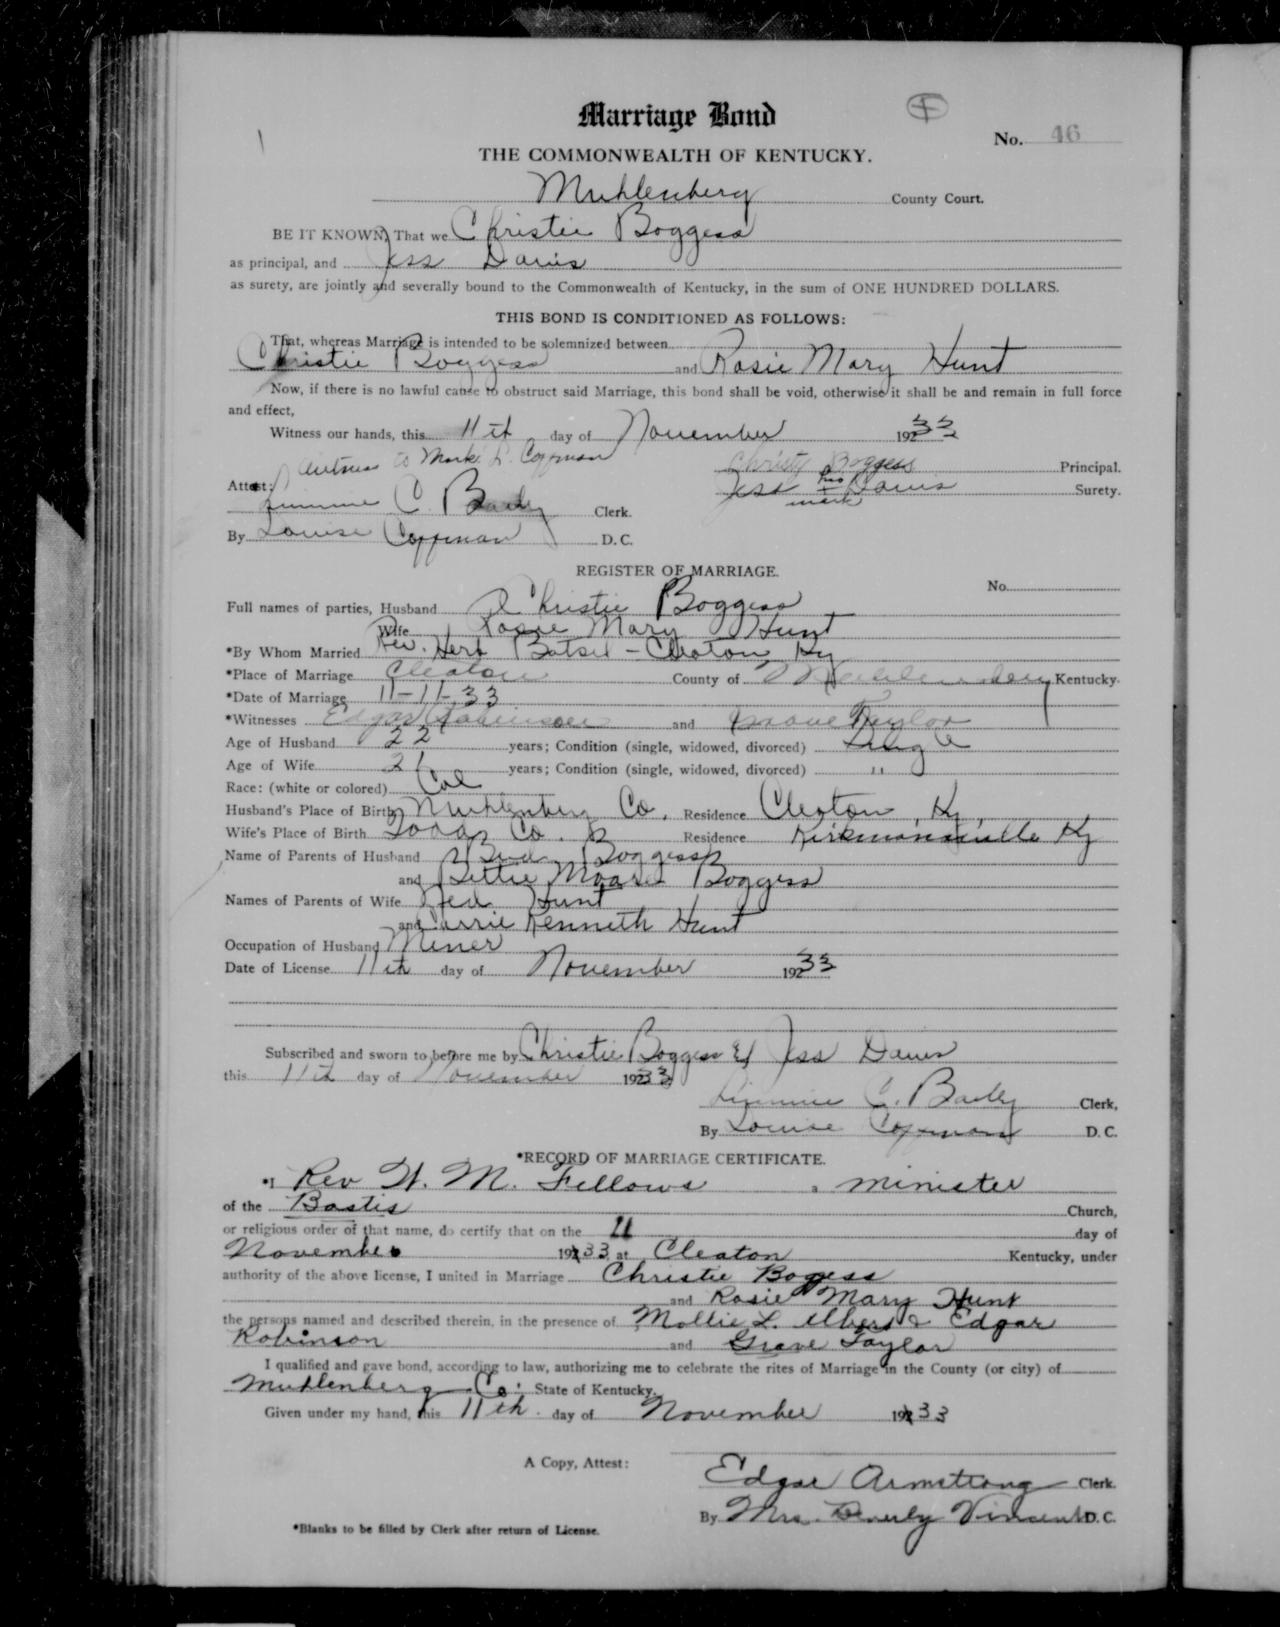 Marriage Bond
No. 46
THE COMMONWEALTH OF KENTUCKY.
Muhlenberg County Court.
BE IT KNOWN, That we Christie Boggess
as principal, and Jess Davis
as surety, are jointly and severally bound to the Commonwealth of Kentucky, in the sum of ONE HUNDRED DOLLARS.
THIS BOND IS CONDITIONED AS FOLLOWS:
That, whereas Marriage is intended to be solemnized between
Christie Boggess and Rosie Mary Hunt
Now, if there is no lawful cause to obstruct said Marriage, this bond shall be void, otherwise it shall be and remain in full force
and effect,
Witness our hands, this 11th day of November 19233
Witness to Mark L. Coffman Christy Boggess Principal.
Attest: Jess his x mark Davis Surety.
C. Clerk.
By Louise Coffman D. C.
REGISTER OF MARRIAGE.
No.
Full names of parties, Husband Christie Boggess
Wife Rosie Mary Hunt
*By Whom Married Rev. Herb Batsel - Cleaton Ky
*Place of Marriage Cleaton County of Muhlenberg Kentucky.
*Date of Marriage 11-11-33
*Witnesses Edgar Robinson and Grove Taylor
Age of Husband 22 years; Condition (single, widowed, divorced) Single
Age of Wife 21 years; Condition (single, widowed, divorced) "
Race: (white or colored) Col
Husband's Place of Birth Muhlenberg Co. Residence Cleaton, Ky.
Wife's Place of Birth Todd Co. Residence Kirkmansville Ky
Name of Parents of Husband Bud Boggess
and Bettie Moore Boggess
Names of Parents of Wife Hunt
and Carrie Kenneth Hunt
Occupation of Husband Miner
Date of License 11th day of November 19233
Subscribed and sworn to before me by Christie Boggess & Jess Davis
this 11th day of November 19233
C. Clerk,
By Louise Coffman D. C.
*RECORD OF MARRIAGE CERTIFICATE.
*I Rev W. M. Fellows, minister
of the Bastis Church,
or religious order of that name, do certify that on the 11 day of
November 19233 at Cleaton Kentucky, under
authority of the above license, I united in Marriage Christie Boggess
and Rosie Mary Hunt
the persons named and described therein, in the presence of Mollie L. & Edgar
Robinson and Grove Taylor
I qualified and gave bond, according to law, authorizing me to celebrate the rites of Marriage in the County (or city) of
Muhlenberg Co. State of Kentucky.
Given under my hand, this 11th day of November 19233
A Copy, Attest:
Edgar Armstrong Clerk.
By Mrs. Beverly Vincent D. C.
*Blanks to be filled by Clerk after return of License.